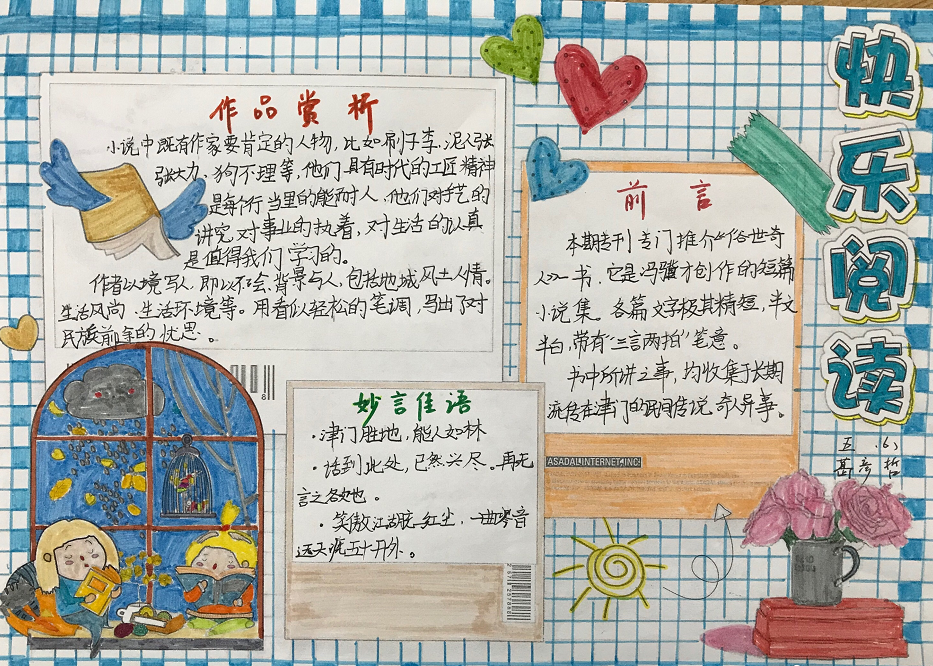 快乐阅读
五.(6)
作品赏析
小说中既有作家要肯定的人物,比如刷子李、泥人张
张大力、狗不理等,他们具有时代的工匠精神
是每个行当里的能耐人,他们对手艺的
讲究对事业的执着,对生活的认真
是值得我们学习的。
作者以境写人,即以不会背景与人,包括地域风土人情。
生活风尚、生活环境等。用看似轻松的笔调,写出了对
民族前年的忧思。
前言
本期专刊专门推介《俗世奇
人》一书,它是冯骥才创作的短篇
小说集。各篇文字极其精短,半文
半白,带有“三言两拍”笔意。
书中所讲之事,均收集于长期
流传在津门的民间传说,奇人异事。
ASADAL INTERNET, INC!
妙言佳语
·津门胜地,能人如林
·话到此处,已然兴尽。再无
言之
·笑傲江湖脱红尘,一曲琴音